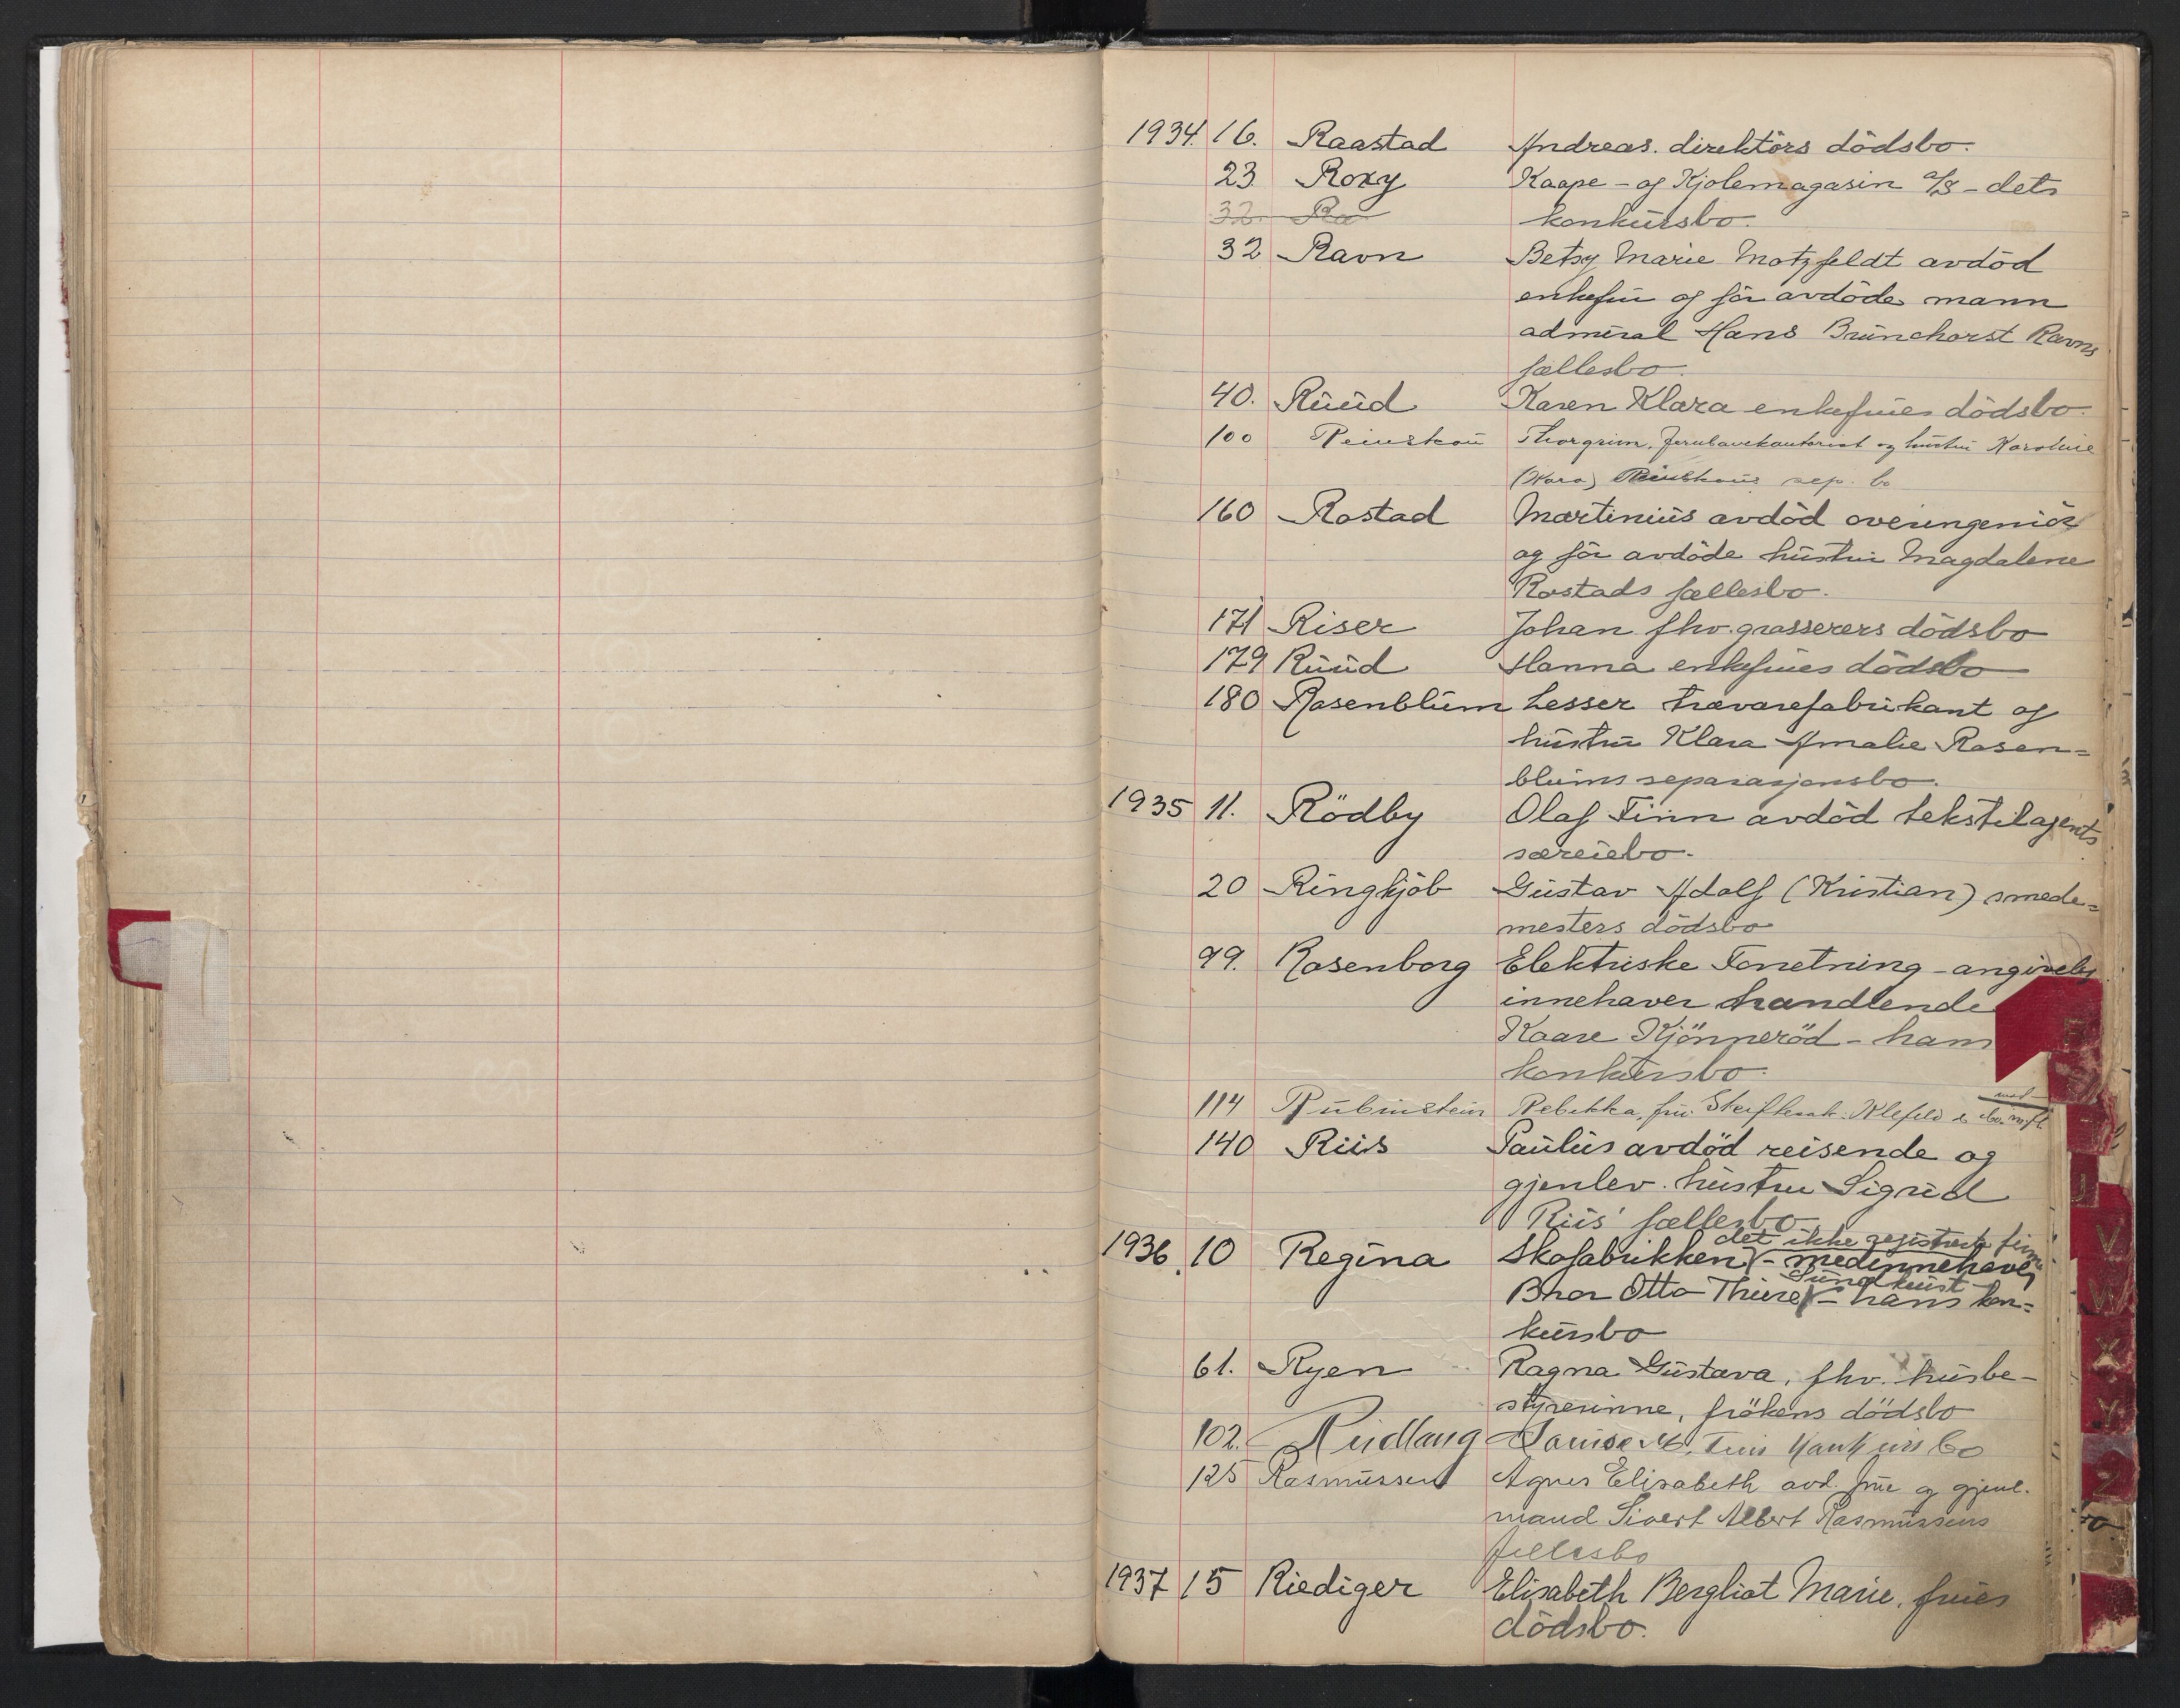 1934. 16. Raastad Andreas. direktörs dödsbo.
23 Roxy Kaape- og Kjolemagasin a/s - dets
32. Ra konkursbo.
32 Ravn Betsy Marie Motzfeldt avdöd
enkefru og för avdöde mann
admiral Hans Brunchorst Ravns
fællesbo.
40. Ruud Karen Klara enkefrues dödsbo.
100 Reinskou Thorgrim, Jernbanekontorist og hustru Karoline
(Kara) Reinskous sep. bo
160 Rostad Martinius avdöd overingeniör
og för avdöde hustru Magdalene
Rostads fællesbo.
171 Riser Johan fhv. grosserers dödsbo
179 Ruud Hanna enkefrues dödsbo
180 Rosenblum Lesser trævarefabrikant og
hustru Klara Amalie Rosen=
blums separasjonsbo.
1935 11. Rödby Olaf Finn avdöd tekstilagents
særeiebo.
20 Ringkjöb Gustav Adolf (Kristian) smede=
mesters dödsbo
99. Rosenborg Elektriske Forretning - angivelig
innehaver handlende
Kaare Kjönneröd - hans
konkursbo.
114 Rubinstein Rebekka, fru
140 Riis Paulus avdöd reisende og
gjenlev. hustru Sigrid
Riis' fællesbo
det ikke registrerte firma
1936. 10 Regina Skofabrikken - medinnehaver
Sundkuist
Bror Otto Thure - hans kon=
kursbo
61. Ryen Ragna Gustava, fhv. husbe-
styrerinne, frökens dödsbo
102. Rudlang Louise M. Frus konkurs bo
125 Rasmussen Agnes Elisabeth avd. frue og gjenl.
mand Sivert Albert Rasmussens
fellesbo
1937 15 Riediger Elisabeth Bergliot Marie, frues
dödsbo.
U
V
W
X
Y